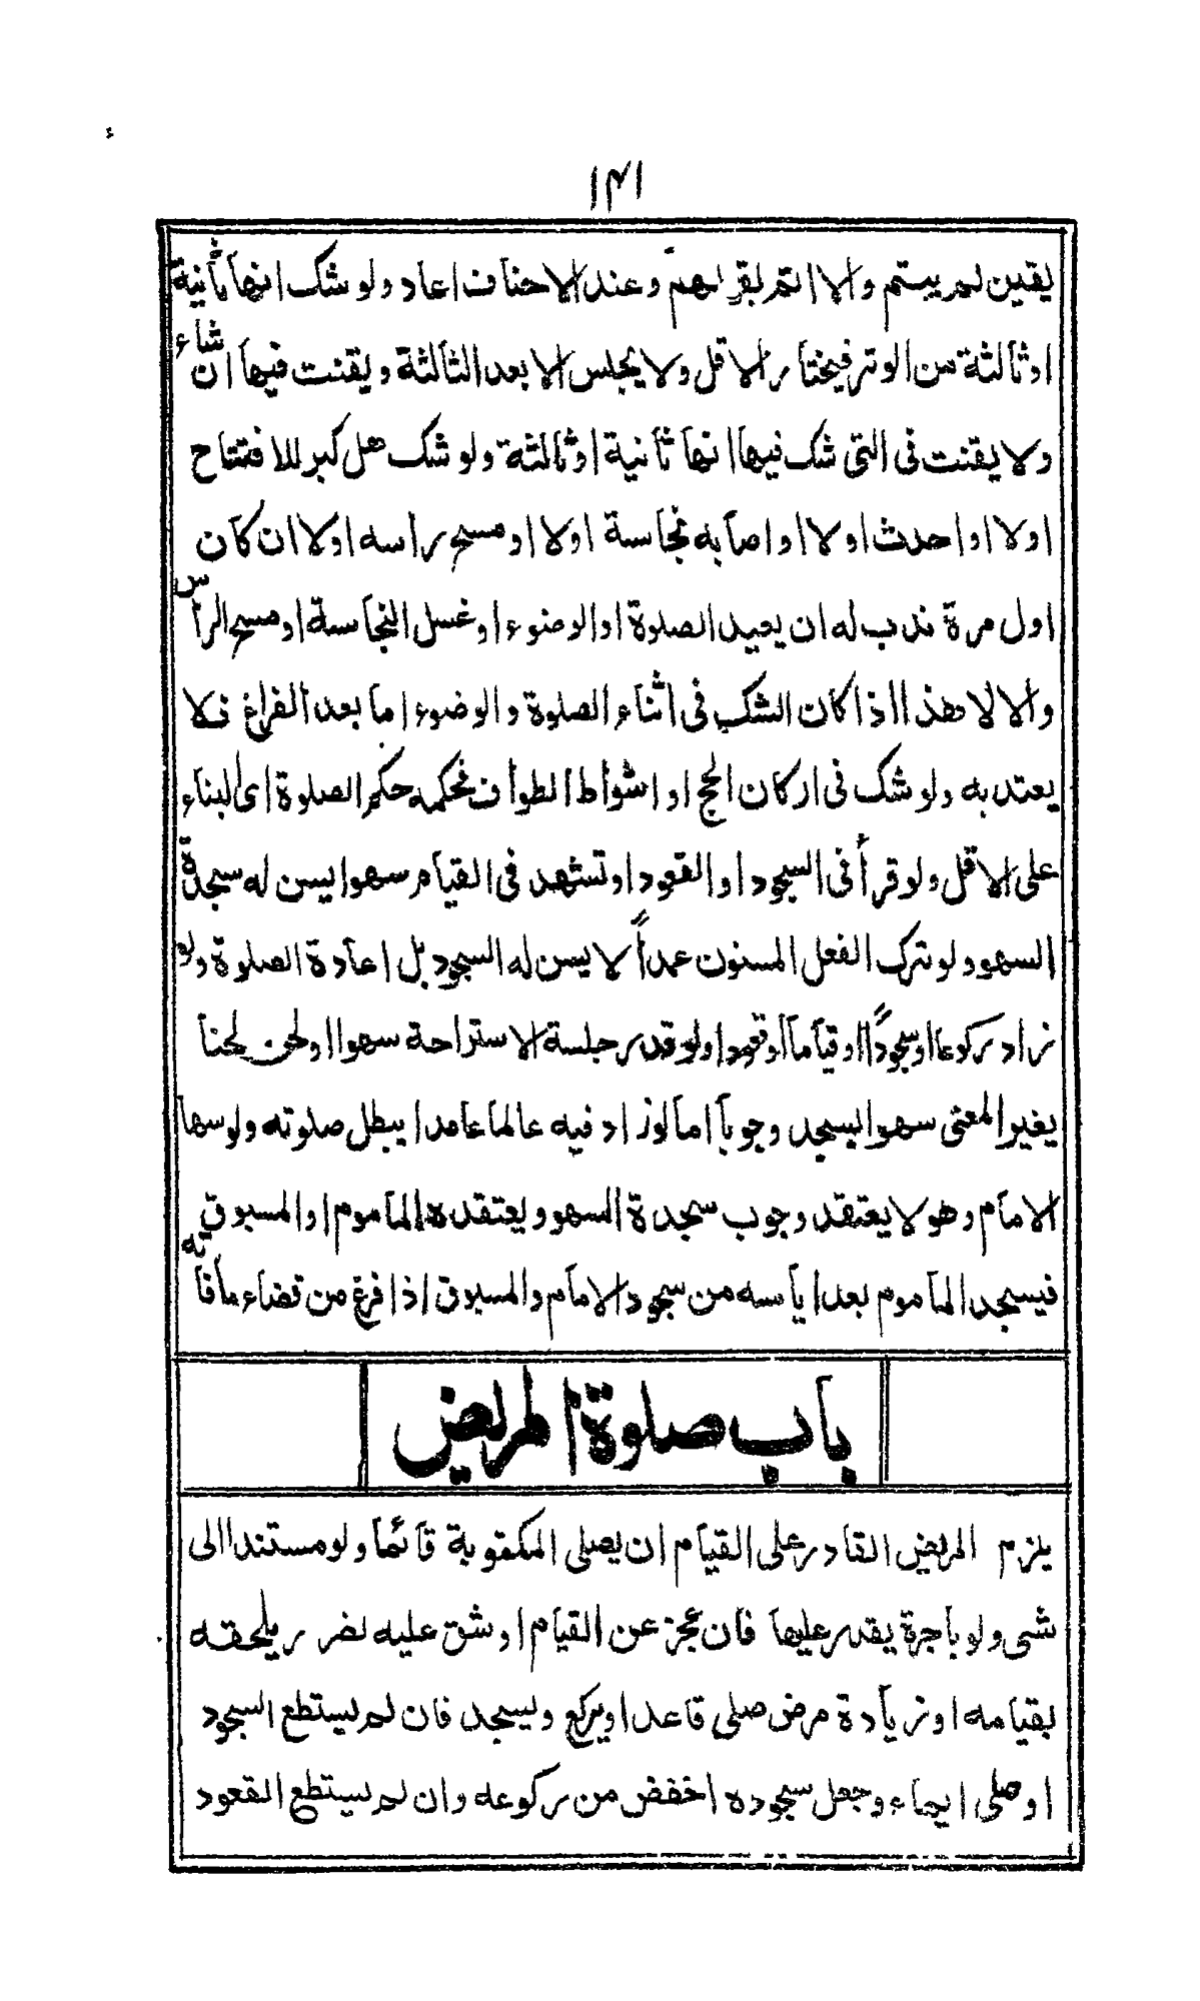 ١٤١
يقين لم يتم والا اتم بقراءتهم وعند الاحناف اعاد ولو شك انها ثانية
او ثالثة من الوتر فيختار الاقل ولا يجلس الا بعد الثالثة ويقنت فيها ان شاء
ولا يقنت فى التى شك فيها انها ثانية او ثالثة ولو شك هل كبر للافتتاح
اولا او احدث اولا او اصابه نجاسة اولا او مسح راسه اولا ان كان
اول مرة ندب له ان يعيد الصلوة او الوضوء او غسل النجاسة او مسح الراس
والا لا هذا اذا كان الشك فى اثناء الصلوة والوضوء اما بعد الفراغ فلا
يعتد به ولو شك فى اركان الحج او اشواط الطواف فحكمه حكم الصلوة اى البناء
على الاقل ولو قرأ فى السجود او القعود او تشهد فى القيام سهوا يسن له سجدة
السهو ولو ترك الفعل المسنون عمداً لا يسن له السجود بل اعادة الصلوة ولو
زاد ركوعا او سجوداً او قياماً او قعودا ولو قدر جلسة الاستراحة سهوا او لحن لحنا
يغير المعنى سهوا يسجد وجوبا اما لو زاد فيه عالما عامدا يبطل صلوته ولو سها
الامام وهو لا يعتقد وجوب سجدة السهو ويعتقده الماموم او المسبوق
فيسجد الماموم بعد اياسه من سجود الامام والمسبوق اذا فرغ من قضاء ما فاته
باب صلوة المريض
يلزم المريض القادر على القيام ان يصلى المكتوبة قائما ولو مستندا الى
شى ولو باجرة يقدر عليها فان عجز عن القيام او شق عليه لضرر يلحقه
بقيامه او زيادة مرض صلى قاعدا ويركع ويسجد فان لم يستطع السجود
او صلى ايماء وجعل سجوده اخفض من ركوعه وان لم يستطع القعود